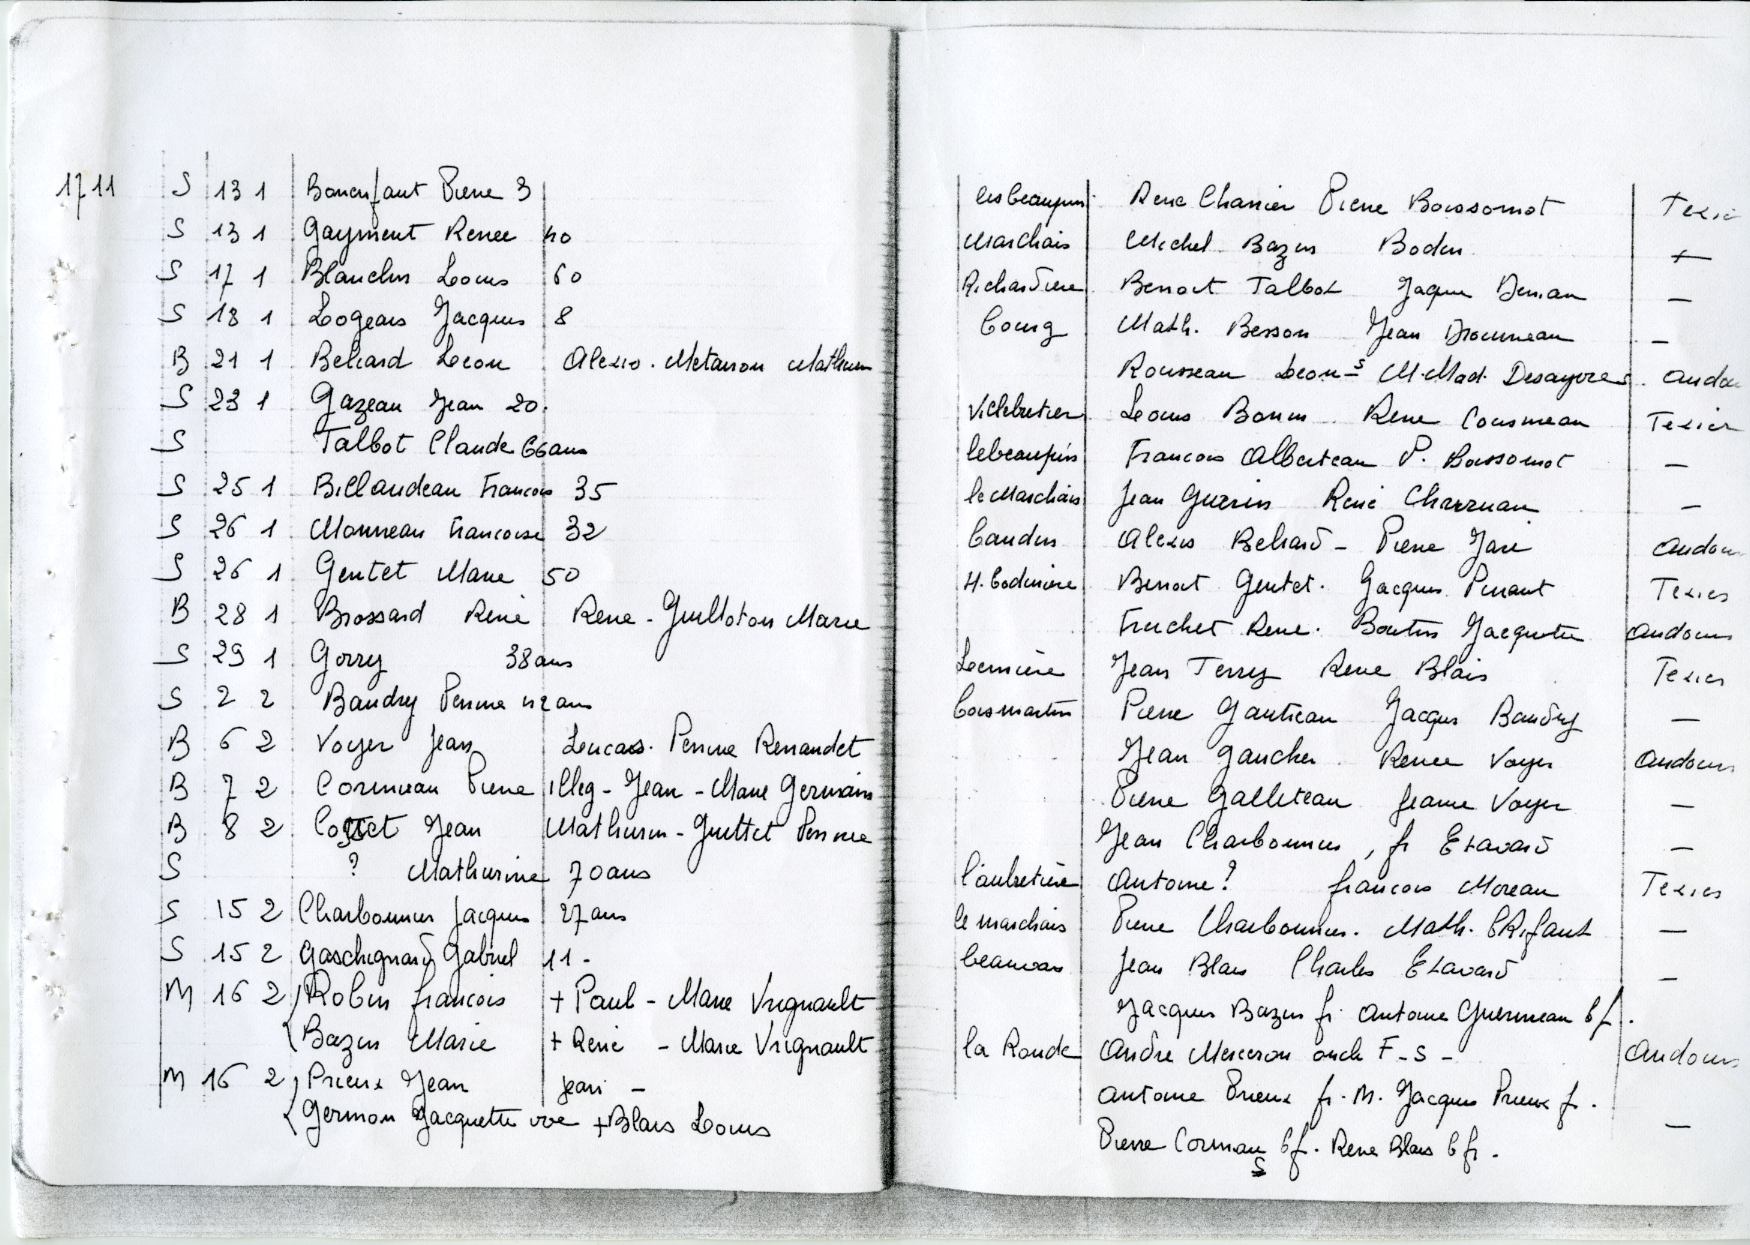 1711 S 13 1 Bonenfant Pierre 3
S 13 1 Gayment Renee 40
S 17 1 Blanchin Louis 60
S 18 1 Logeais Jacques 8
B 21 1 Beliard Louis Alexis. Metairon Mathurin
S 23 1 Gazeau Jean 20.
S Talbot Claude 66 ans
S 25 1 Billaudeau Francois 35
S 26 1 Monneau Francoise 32
S 26 1 Gentet Marie 50
B 28 1 Brossard René Rene - Guilloton Marie
S 29 1 Gorry 38 ans
S 2 2 Baudry Perrine 42 ans
B 6 2 Voyer Jean Lucas. Perrine Renaudet
B 7 2 Cormeau Pierre illeg - Jean - Marie Germain
B 8 2 Jean Mathurin - Guittet Perrine
S ? Mathurine 70 ans
S 15 2 Charbonnier Jacques 27 ans
S 15 2 Gaschignard Gabriel 11 -
M 16 2 Robin francois + Paul - Marie Vrignault
Bazin Marie + René - Marie Vrignault
M 16 2 Prieux Jean Jean -
Germon Jacquette vve + Blais Louis
lesbeaupins Rene Charrier Pierre Boissomot Texier
Marchais Michel Bazin Bodin +
Richardiere Benoit Talbot Jaques —
bourg Math. Besson Jean Drouineau —
Rousseau Louis - S M. Mad. Desayvres. Andou
Villebretier Louis Bonin Rene Cousineau Texier
lebeaupin Francois Alberteau P. Boissomot —
le Marchais Jean Guerin René —
baudin Alexis Beliard - Pierre Jarie Andou
H. bodiniere Benoit Gentet. Jacques Texier
Fruchet Rene. Boutin Jacquette Andouin
Jean Terry Rene Blais Texier
boismartin Pierre Gautreau Jacques Baudry —
Jean Gaucher Renee Voyer Andouin
Pierre Galliteau Jeanne Voyer —
Jean Charbonnier, fr Etavard —
l'aubretière Antoine ? francois Moreau Texier
le marchais Pierre Charbonnier. Math. —
beauvais Jean Blais Charles Etavard —
Jacques Bazin fr. Antoine Guerineau bf.
la Ronde Andre Merceron oncle F - S - Andouin
Antoine Prieux fr. M. Jacques Prieux fr.
Pierre Cormeau S bf. Rene Blais bfr. —